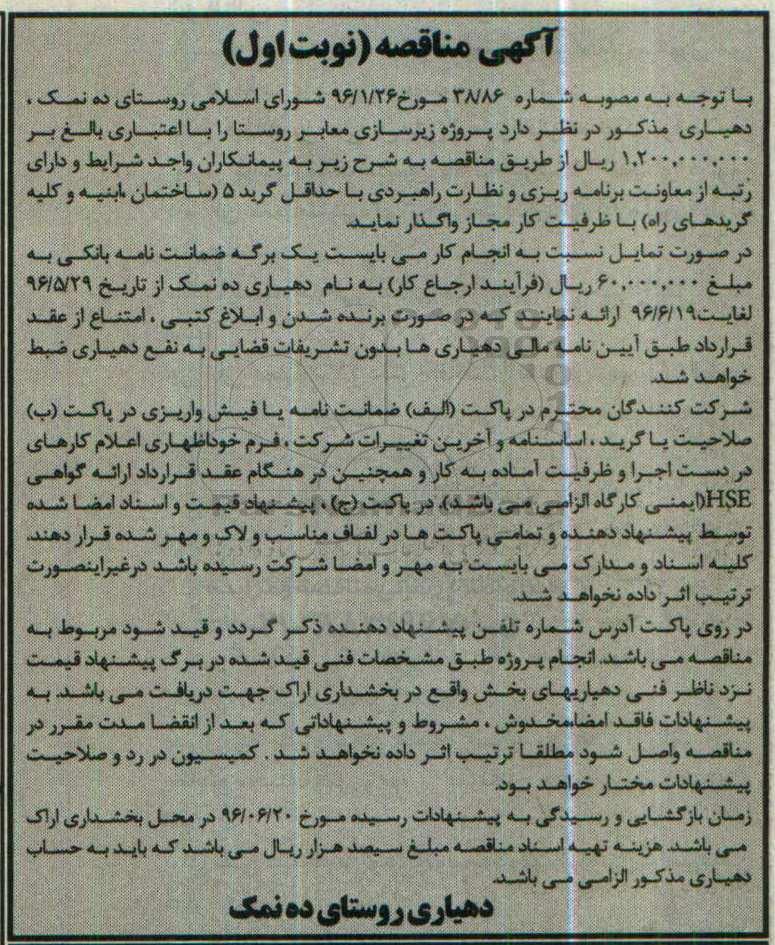 آگهی مناقصه (نوبت اول)
با توجه به مصوبه شماره ۳۸/۸۶ مورخ۹۶/۱/۲۶ شورای اسلامی روستای ده نمک ،
دهیاری مذکور در نظر دارد پروژه زیرسازی معابر روستا را با اعتباری بالغ بر
۱,۲۰۰,۰۰۰,۰۰۰ ریال از طریق مناقصه به شرح زیر به پیمانکاران واجد شرایط و دارای
رتبه از معاونت برنامه ریزی و نظارت راهبردی با حداقل گرید ۵ (ساختمان ،ابنیه و کلیه
گریدهای راه) با ظرفیت کار مجاز واگذار نماید.
در صورت تمایل نسبت به انجام کار می بایست یک برگه ضمانت نامه بانکی به
مبلغ ۶۰,۰۰۰,۰۰۰ ریال (فرآیند ارجاع کار) به نام دهیاری ده نمک از تاریخ ۹۶/۵/۲۹
لغایت۹۶/۶/۱۹ ارائه نمایند که در صورت برنده شدن و ابلاغ کتبی ، امتناع از عقد
قرارداد طبق آیین نامه مالی دهیاری ها بدون تشریفات قضایی به نفع دهیاری ضبط
خواهد شد.
شرکت کنندگان محترم در پاکت (الف) ضمانت نامه یا فیش واریزی در پاکت (ب)
صلاحیت یا گرید ، اساسنامه و آخرین تغییرات شرکت ، فرم خوداظهاری اعلام کارهای
در دست اجرا و ظرفیت آماده به کار و همچنین در هنگام عقد قرارداد ارائه گواهی
HSE(ایمنی کارگاه الزامی می باشد). در پاکت (ج) ، پیشنهاد قیمت و اسناد امضا شده
توسط پیشنهاد دهنده و تمامی پاکت ها در لفاف مناسب و لاک و مهر شده قرار دهند.
کلیه اسناد و مدارک می بایست به مهر و امضا شرکت رسیده باشد درغیراینصورت
ترتیب اثر داده نخواهد شد.
در روی پاکت آدرس شماره تلفن پیشنهاد دهنده ذکر گردد و قید شود مربوط به
مناقصه می باشد. انجام پروژه طبق مشخصات فنی قید شده در برگ پیشنهاد قیمت
نزد ناظر فنی دهیاریهای بخش واقع در بخشداری اراک جهت دریافت می باشد. به
پیشنهادات فاقد امضا،مخدوش ، مشروط و پیشنهاداتی که بعد از انقضا مدت مقرر در
مناقصه واصل شود مطلقا ترتیب اثر داده نخواهد شد . کمیسیون در رد و صلاحیت
پیشنهادات مختار خواهد بود.
زمان بازگشایی و رسیدگی به پیشنهادات رسیده مورخ ۹۶/۰۶/۲۰ در محل بخشداری اراک
می باشد. هزینه تهیه اسناد مناقصه مبلغ سیصد هزار ریال می باشد که باید به حساب
دهیاری مذکور الزامی می باشد.
دهیاری روستای ده نمک